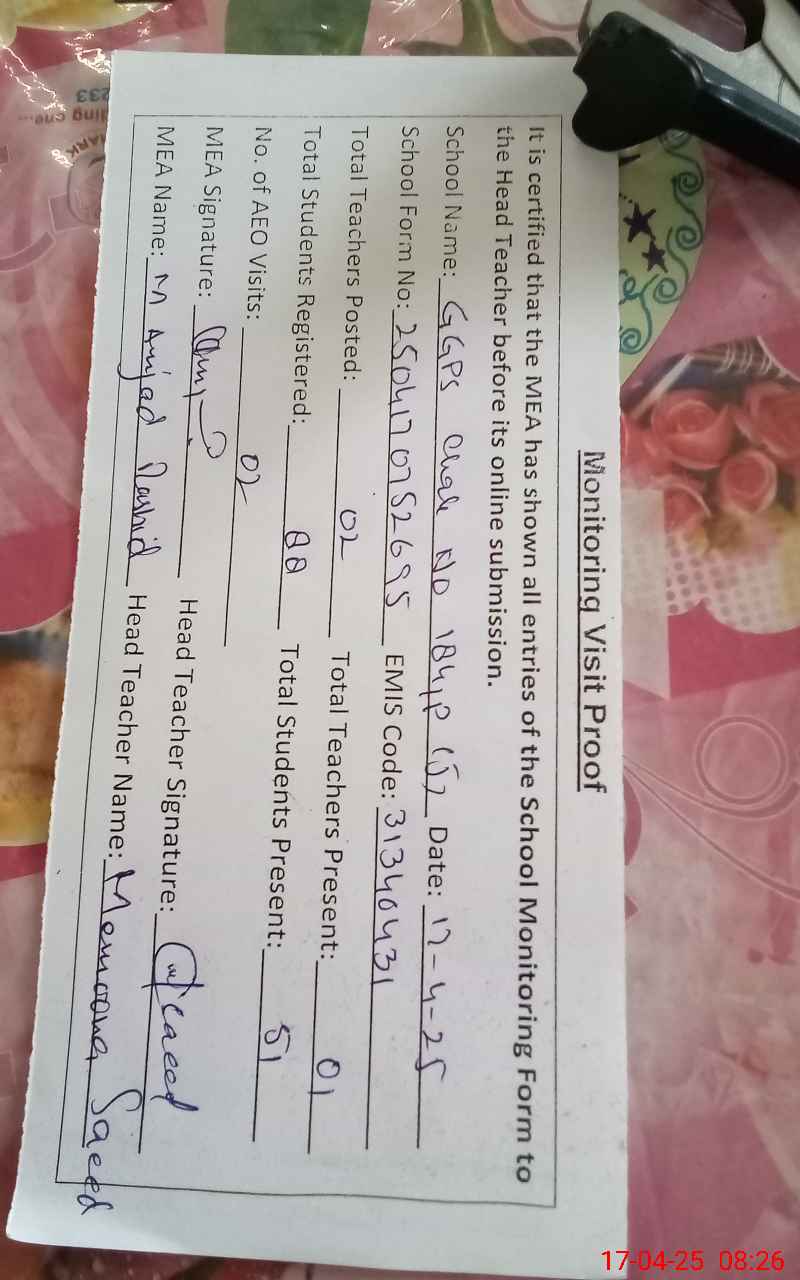 Monitoring Visit Proof
It is certified that the MEA has shown all entries of the School Monitoring Form to
the Head Teacher before its online submission.
School Name: GGPS Chak No 184/P (J) Date: 17-4-25
School Form No: 2504170752695 EMIS Code: 31340431
Total Teachers Posted: 02 Total Teachers Present: 01
Total Students Registered: 88 Total Students Present: 51
No. of AEO Visits: 02
MEA Signature: Head Teacher Signature: Saeed
MEA Name: M Amjad Rashid Head Teacher Name: Memoona Saeed
17-04-25 08:26
233
MARK